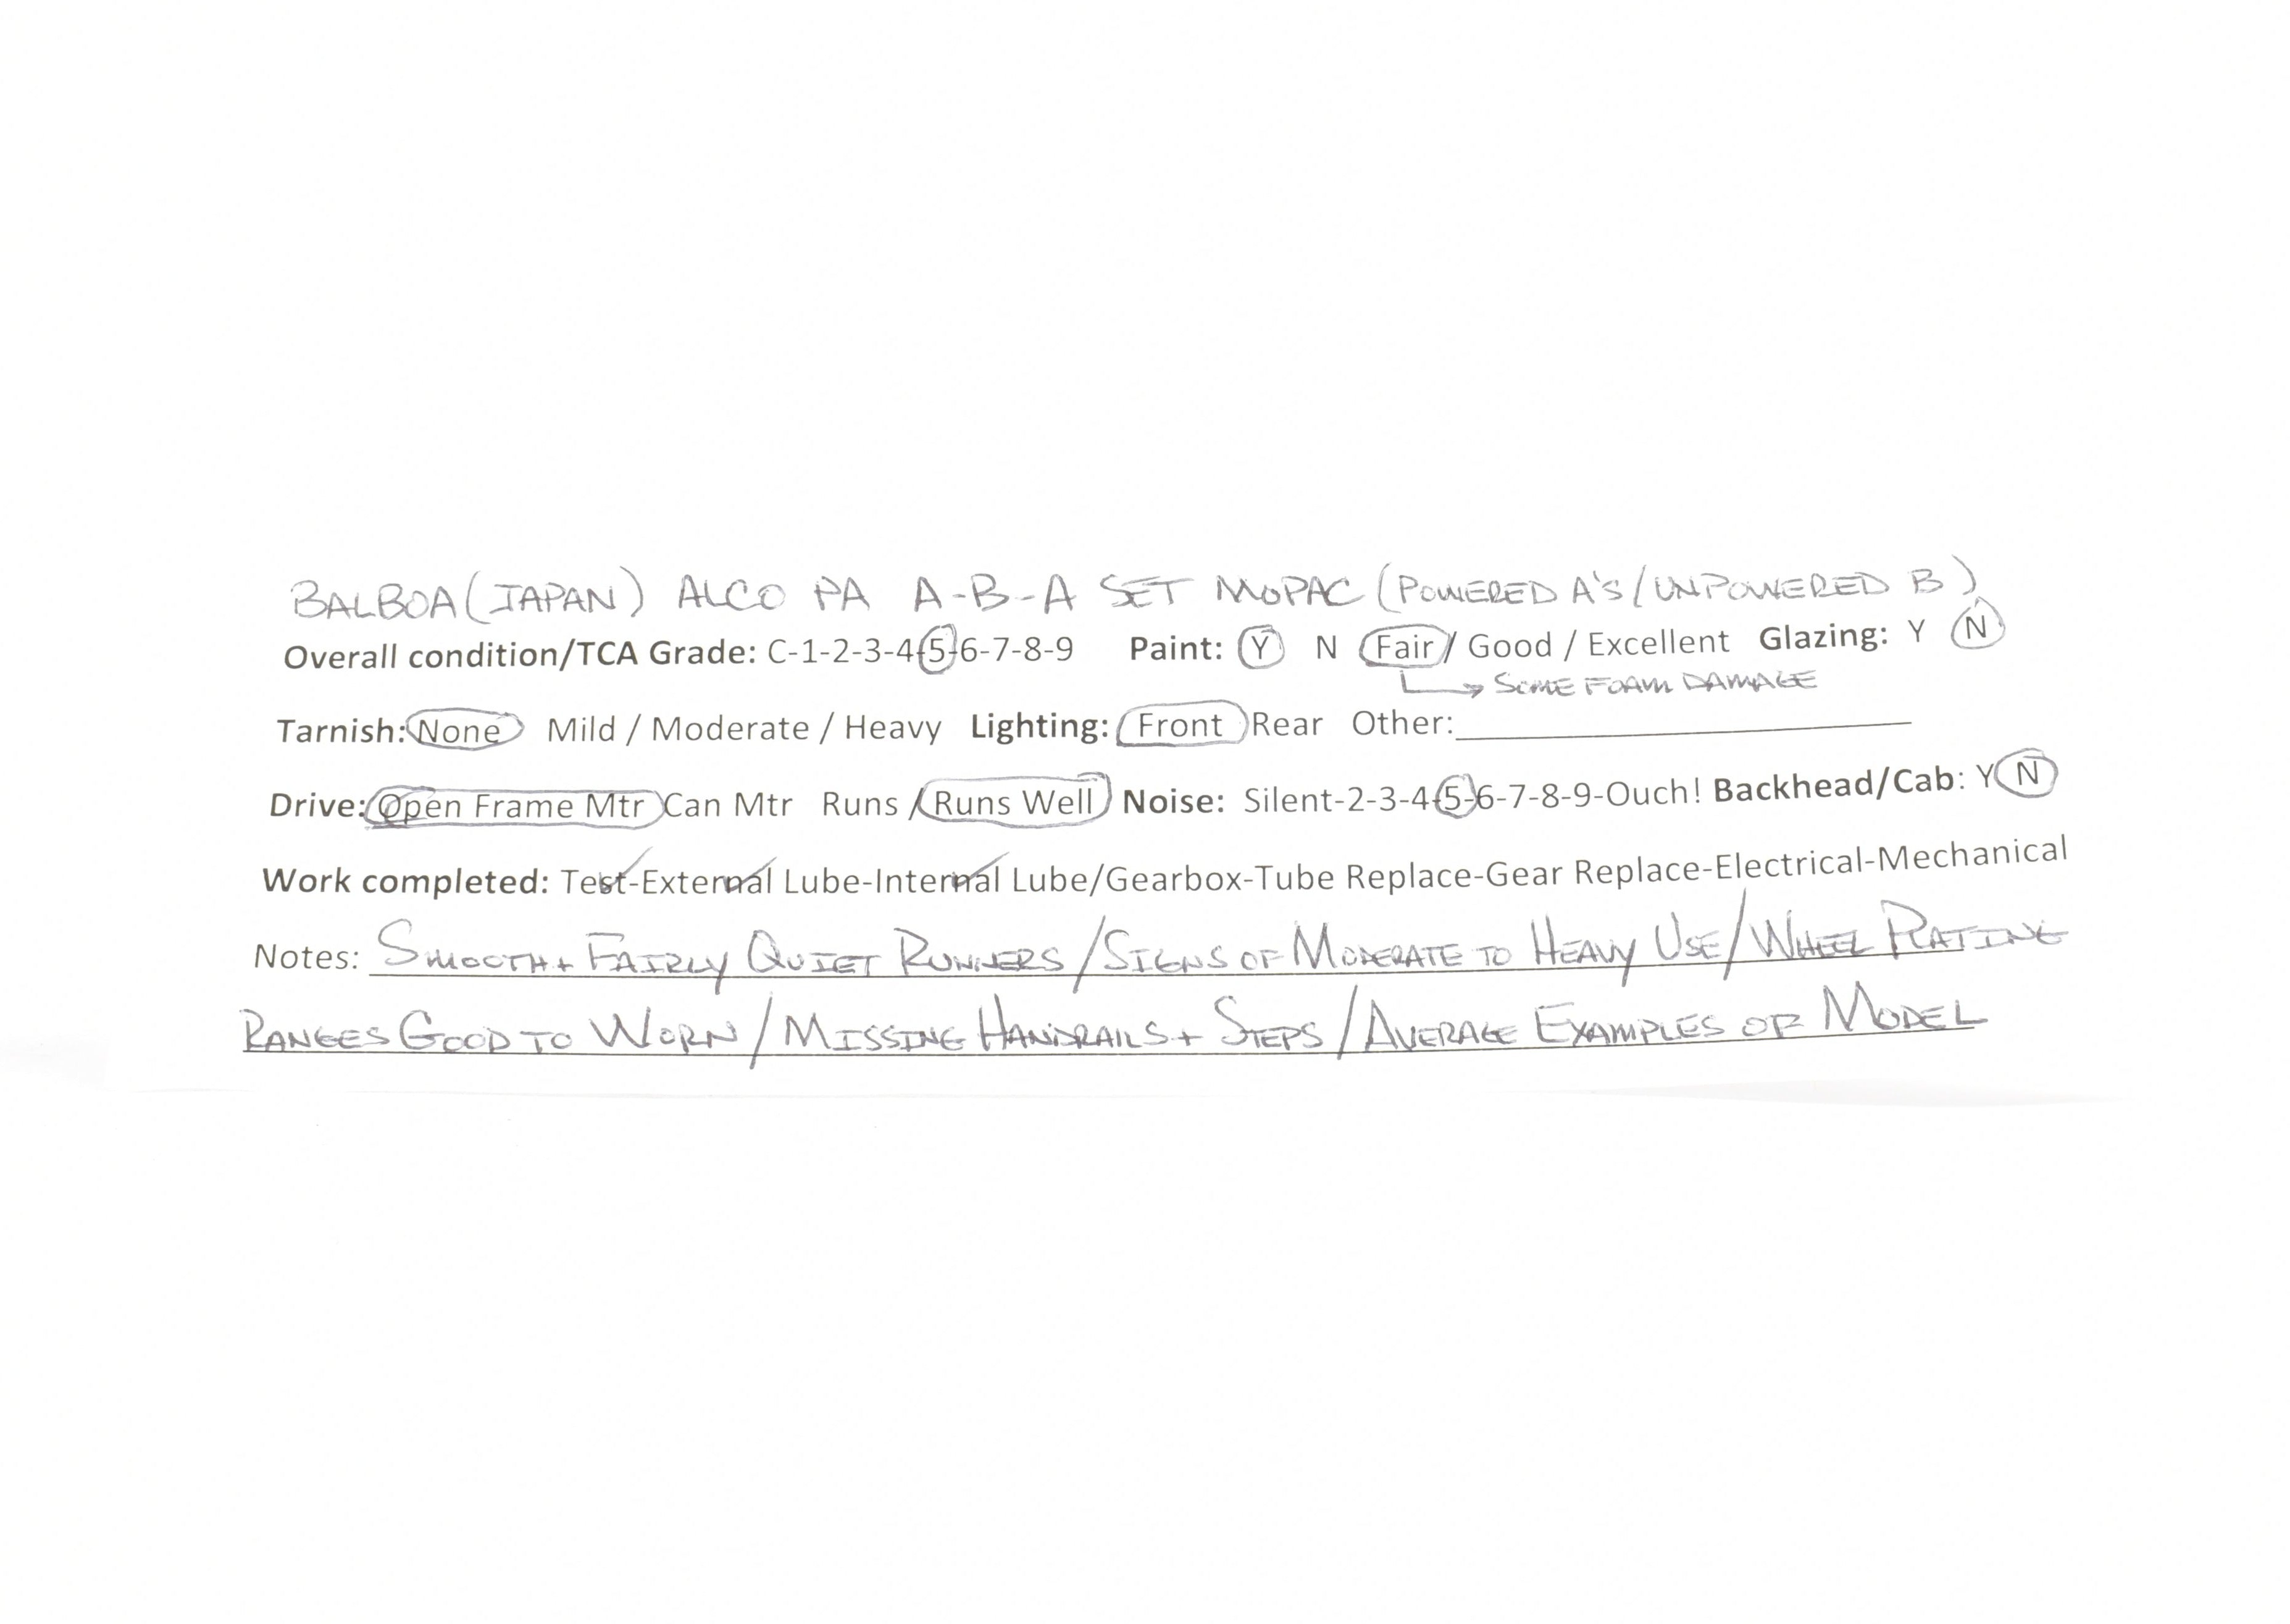 BALBOA (JAPAN) ALCO PA A-B-A SET MOPAC (POWERED A'S/UNPOWERED B)
Overall condition/TCA Grade: C-1-2-3-4-5-6-7-8-9 Paint: Y N Fair / Good / Excellent Glazing: Y N
SOME FOAM DAMAGE
Tarnish: None Mild / Moderate / Heavy Lighting: Front Rear Other:
Drive: Open Frame Mtr Can Mtr Runs / Runs Well Noise: Silent-2-3-4-5-6-7-8-9-Ouch! Backhead/Cab: Y N
Work completed: Test-External Lube-Internal Lube/Gearbox-Tube Replace-Gear Replace-Electrical-Mechanical
Notes: SMOOTH + FAIRLY QUIET RUNNERS / SIGNS OF MODERATE TO HEAVY USE / WHEEL PLATING
RANGES GOOD TO WORN / MISSING HANDRAILS + STEPS / AVERAGE EXAMPLES OF MODEL